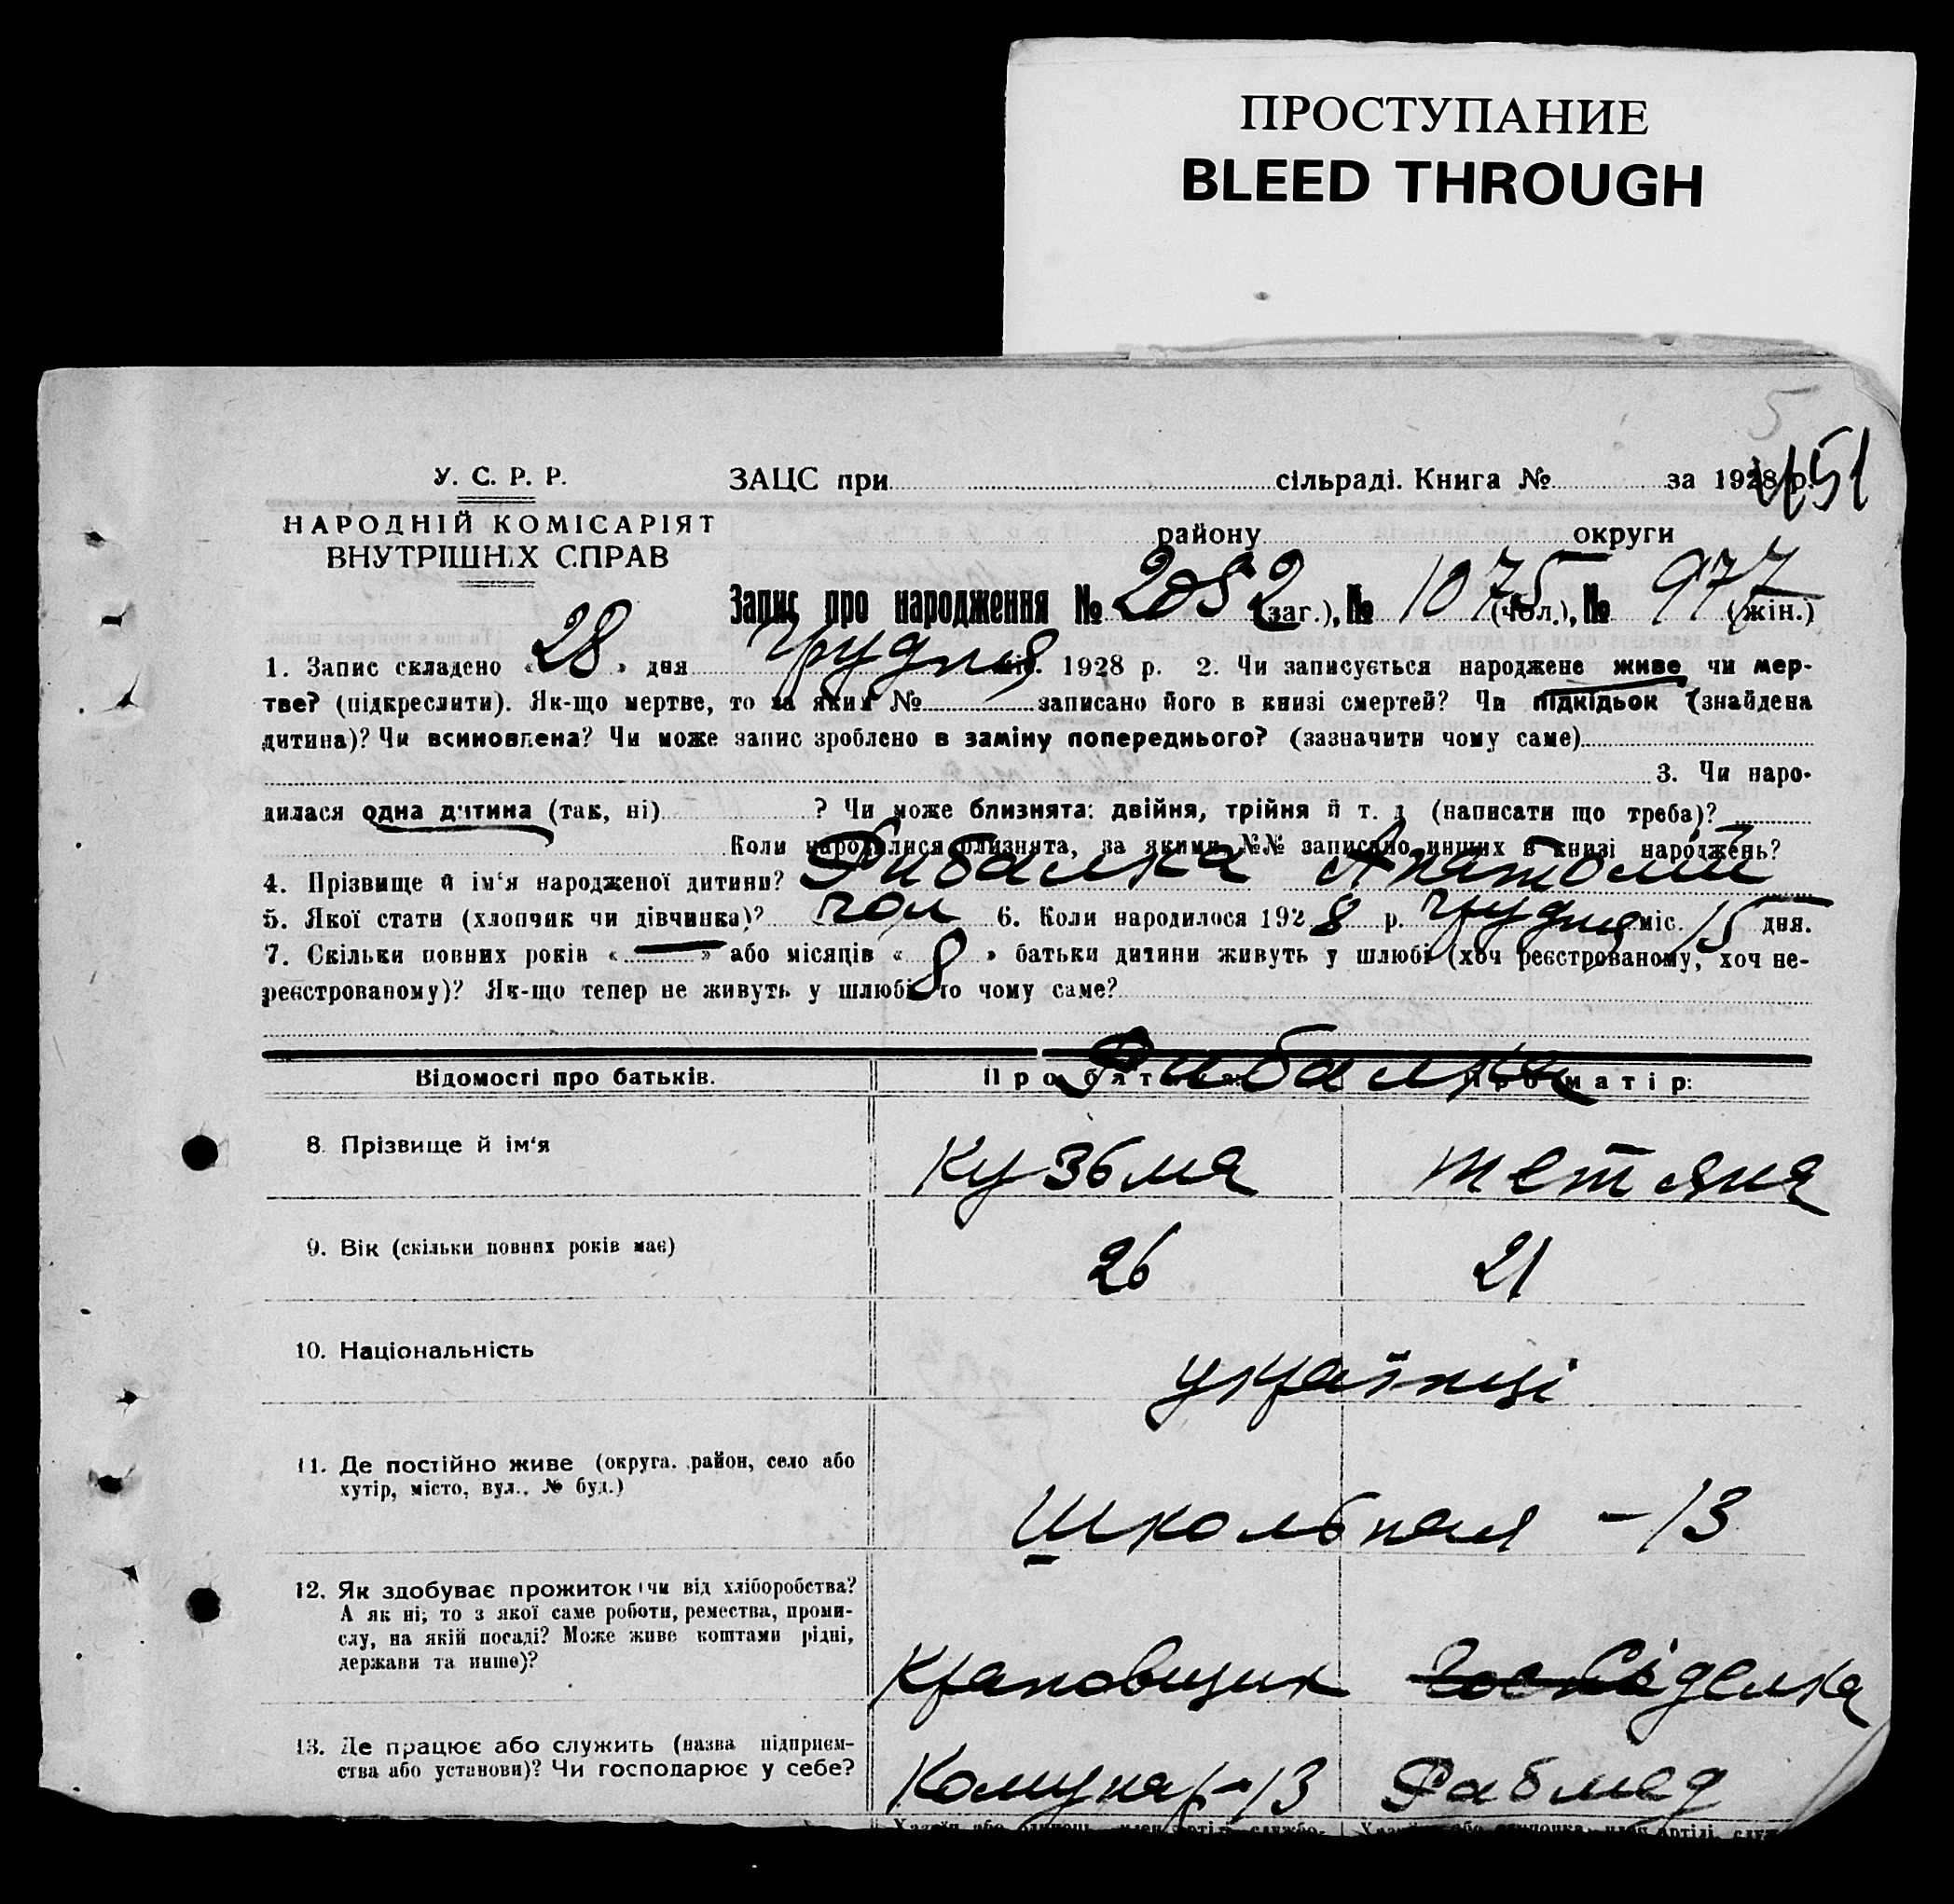 ПРОСТУПАНИЕ
BLEED THROUGH
5
51
У. С. Р. Р.
НАРОДНІЙ КОМІСАРІЯТ
ВНУТРІШНІХ СПРАВ
ЗАЦС при сільраді. Книга № за 1928 р.
району округи
Запис про народження № 2052 (заг.), № 1075 (чол.), № 977 (жін.)
1. Запис складено « 28 » дня Грудня міс. 1928 р. 2. Чи записується народжене живе чи мер-
тве? (підкреслити). Як-що мертве, то за яким № записано його в книзі смертей? Чи підкідьок (знайдена
дитина)? Чи всиновлена? Чи може запис зроблено в заміну попереднього? (зазначити чому саме)
3. Чи наро-
дилася одна дитина (так, ні) ? Чи може близнята: двійня, трійня й т. д (написати що треба)?
Коли народилися близнята, за якими №№ записано инших в книзі народжень?
4. Прізвище й ім‘я народженої дитини? Рибалка Анатолій
5. Якої стати (хлопчик чи дівчинка)? чол 6. Коли народилося 1928 р. Грудня міс. 15 дня.
7. Скільки повних років « — » або місяців « 8 » батьки дитини живуть у шлюбі (хоч реєстрованому, хоч не-
реєстрованому)? Як-що тепер не живуть у шлюбі, то чому саме?
Відомості про батьків. Про батька: Про матір:
Рибалка
8. Прізвище й ім‘я Кузьма Тетяна
9. Вік (скільки повних років має) 26 21
10. Національність українці
11. Де постійно живе (округа, район, село або
хутір, місто, вул., № буд.)
Школьная – 13
12. Як здобуває прожиток (чи від хліборобства?
А як ні; то з якої саме роботи, ремества, проми-
слу, на якій посаді? Може живе коштами рідні,
держави та инше)?
Крановщик Сіделка
13. Де працює або служить (назва підприєм-
ства або установи)? Чи господарює у себе?
Комунар–13 Рабмед